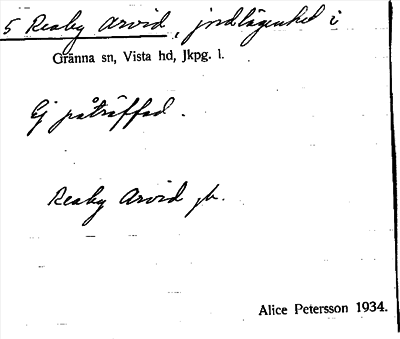 5 Reaby Arvid, jordlägenhet i
Gränna sn, Vista hd, Jkpg. l.
Ej påträffad.
Reaby Arvid jb.
Alice Petersson 1934.